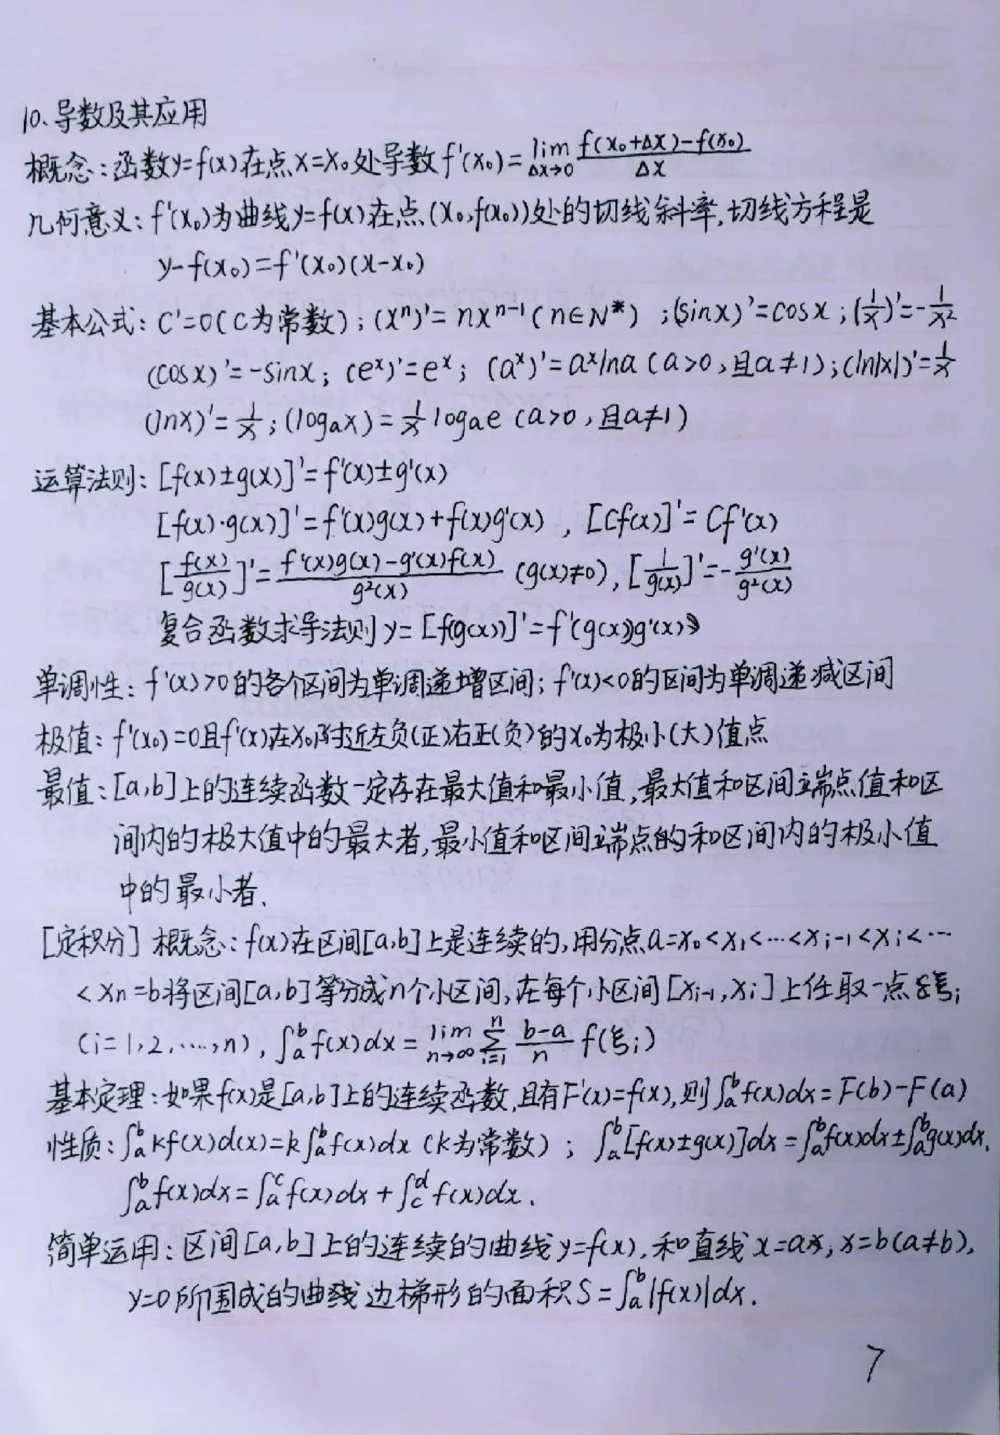 10、导数及其应用
概念:函数y=f(x)在点x=x₀处导数f'(x₀)=lim Δx→0 f(x₀+Δx)-f(x₀) / Δx
几何意义:f'(x₀)为曲线y=f(x)在点(x₀,f(x₀))处的切线斜率,切线方程是
y-f(x₀)=f'(x₀)(x-x₀)
基本公式:C'=0(C为常数);(xⁿ)'=nxⁿ⁻¹(n∈N*);(sinx)'=cosx;(1/x)'=-1/x²
(cosx)'=-sinx;(eˣ)'=eˣ;(aˣ)'=aˣlna(a>0,且a≠1);(ln|x|)'=1/x
(lnx)'=1/x;(logₐx)=1/x logₐe(a>0,且a≠1)
运算法则:[f(x)±g(x)]'=f'(x)±g'(x)
[f(x)·g(x)]'=f'(x)g(x)+f(x)g'(x),[Cf(x)]'=Cf'(x)
[f(x)/g(x)]'=f'(x)g(x)-g'(x)f(x) / g²(x) (g(x)≠0),[1/g(x)]'=-g'(x)/g²(x)
复合函数求导法则y=[f(g(x))]'=f'(g(x))g'(x)
单调性:f'(x)>0的各个区间为单调递增区间;f'(x)<0的区间为单调递减区间
极值:f'(x₀)=0且f'(x)在x₀附近左负(正)右正(负)的x₀为极小(大)值点
最值:[a,b]上的连续函数一定存在最大值和最小值,最大值和区间端点值和区
间内的极大值中的最大者,最小值和区间端点的和区间内的极小值
中的最小者.
[定积分]概念:f(x)在区间[a,b]上是连续的,用分点a=x₀<x₁<…<xᵢ₋₁<xᵢ<…
<xn=b将区间[a,b]等分成n个小区间,在每个小区间[xᵢ₋₁,xᵢ]上任取一点ξᵢ
(i=1,2,…,n),∫ₐᵇf(x)dx=lim n→∞ Σⁿᵢ₌₁ (b-a)/n f(ξᵢ)
基本定理:如果f(x)是[a,b]上的连续函数,且有F'(x)=f(x),则∫ₐᵇf(x)dx=F(b)-F(a)
性质:∫ₐᵇkf(x)d(x)=k∫ₐᵇf(x)dx(k为常数);∫ₐᵇ[f(x)±g(x)]dx=∫ₐᵇf(x)dx±∫ₐᵇg(x)dx.
∫ₐᵇf(x)dx=∫ₐᶜf(x)dx+∫꜀ᵈf(x)dx.
简单运用:区间[a,b]上的连续的曲线y=f(x),和直线x=a,x=b(a≠b),
y=0所围成的曲线边梯形的面积S=∫ₐᵇ|f(x)|dx.
7